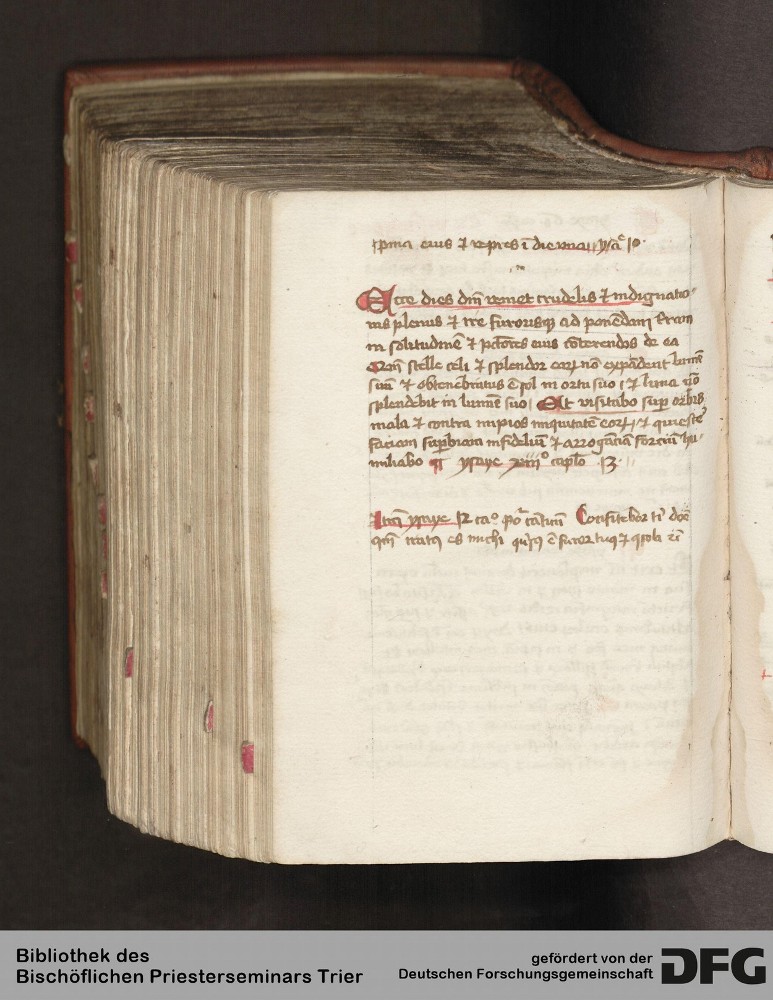 spina eius et vepres i die una ysa 10
Ecce dies dm̄ veniet crudelis ⁊ indignatio
nis plenus ⁊ ire furorisq ad ponendam terram
in solitudinē ⁊ pctōres eius cōterendos de ea
Qm̄ stelle celi ⁊ splendor eorꝝ nō expādent lumē
suū ⁊ obtenebratus ē sol in ortu suo ⁊ luna nō
splendebit in lumīe suo Et visitabo sup orbis
mala ⁊ contra impios iniquitatē eorꝝ ⁊ quiesce
faciam supbiam infideliū ⁊ arroganciā forciū hu
miliabo ¶ ysaye xiiiº caplo 13
Itm̄ ysaye 12 caº Confitebor ti dnē
qm̄ iratꝰ es michi furor tuꝰ ⁊
Bibliothek des
Bischöflichen Priesterseminars Trier
gefördert von der
Deutschen Forschungsgemeinschaft
DFG